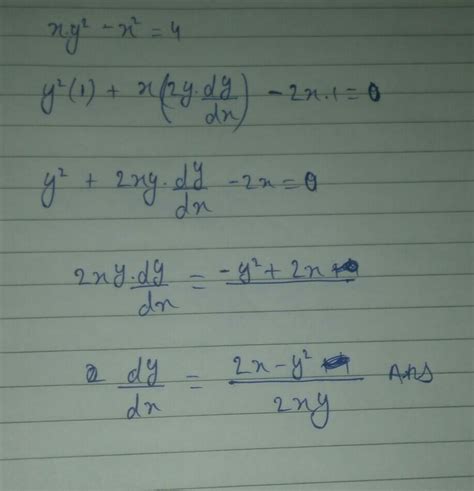 x.y² - x² = 4
y²(1) + x(2y.dy/dx) - 2x.1 = 0
y² + 2xy.dy/dx - 2x = 0
2xy.dy/dx = -y² + 2x
dy/dx = (2x - y²)/2xy Ans